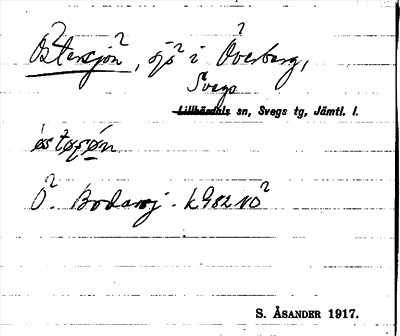 Östersjön?, sjö? i Överberg?,
Svegs
Lillhärdals sn, Svegs tg, Jämtl. l.
östəʂøn
Ö?. Bodarsj. k982 NO?
S. ÅSANDER 1917.